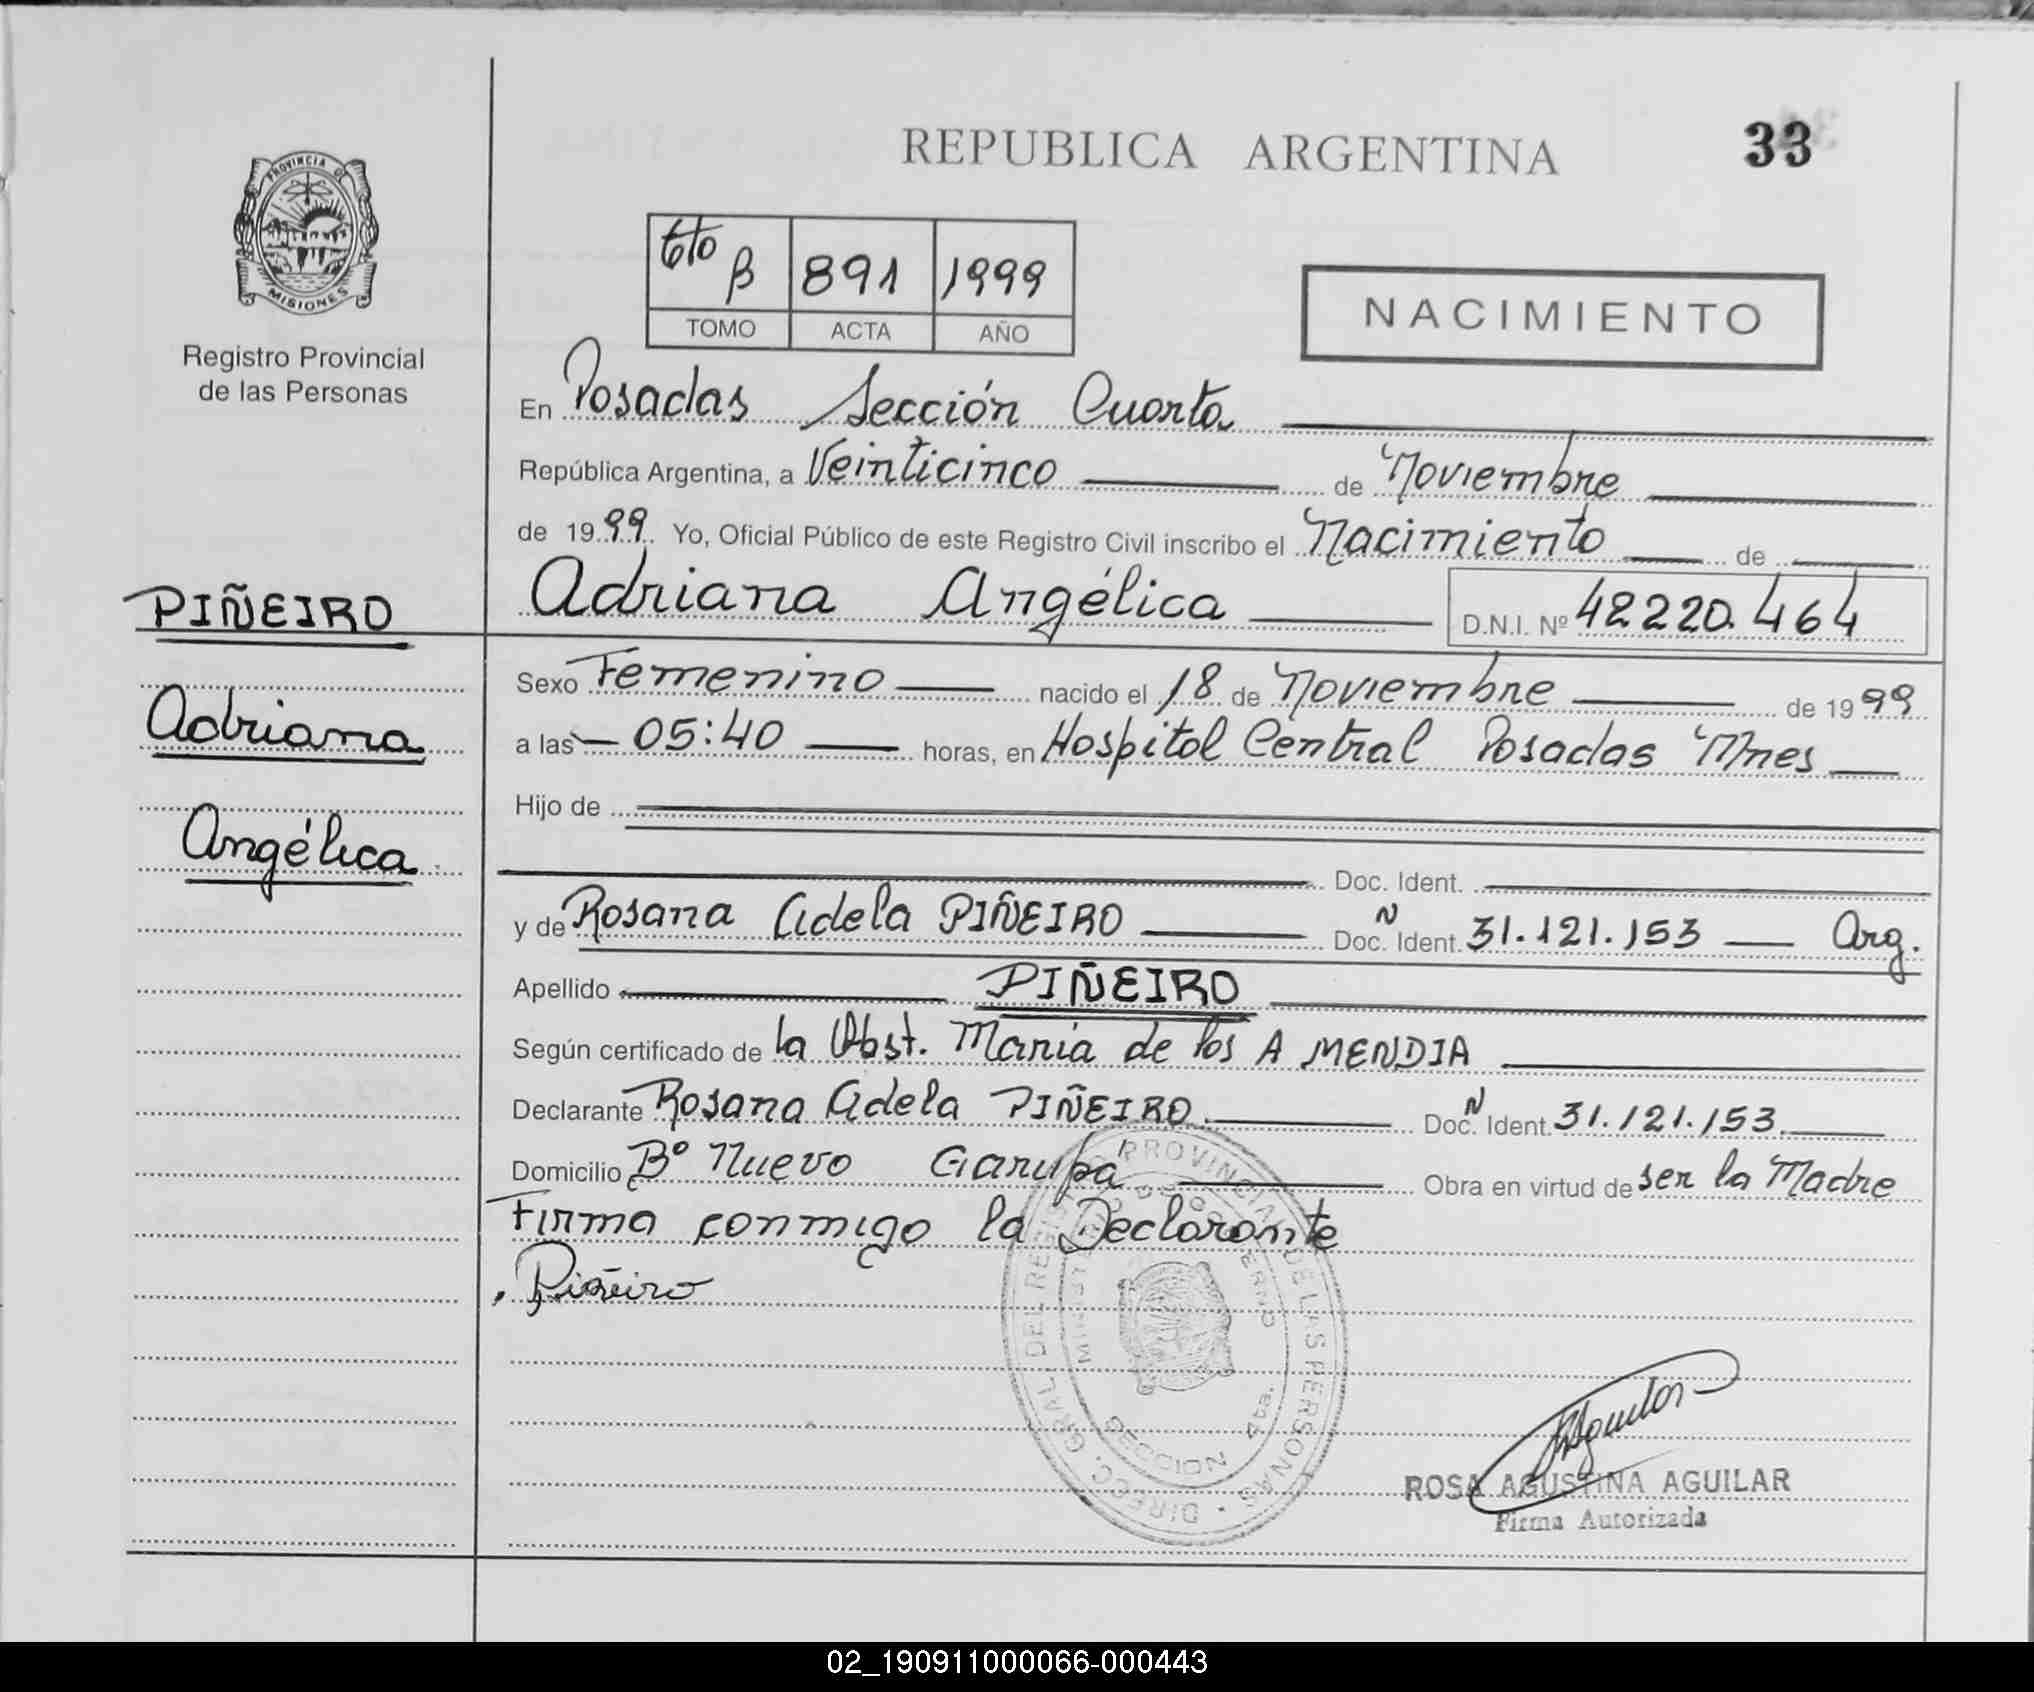 REPUBLICA ARGENTINA
33
PROVINCIA DE
MISIONES
Registro Provincial
de las Personas
6to B 891 1999
TOMO ACTA AÑO
NACIMIENTO
En Posadas Sección Cuarta
República Argentina, a Veinticinco de Noviembre
de 1999 Yo, Oficial Público de este Registro Civil inscribo el Nacimiento de
PIÑEIRO
Adriana
Angélica
Adriana Angélica D.N.I. Nº 42220.464
Sexo Femenino nacido el 18 de Noviembre de 1999
a las 05:40 horas, en Hospital Central Posadas Mnes
Hijo de
Doc. Ident.
y de Rosana Adela PIÑEIRO Doc. N Ident. 31.121.153 Arg.
Apellido PIÑEIRO
Según certificado de la Obst. María de los A MENDIA
Declarante Rosana Adela PIÑEIRO Doc. N Ident. 31.121.153
Domicilio Bº Nuevo Garupa Obra en virtud de ser la Madre
Firma conmigo la Declarante
Piñeiro
DIRECC. GRAL. DEL REGISTRO PROVINCIAL DE LAS PERSONAS
SECCION 4ta.
ROSA AGUSTINA AGUILAR
Firma Autorizada
02_190911000066-000443